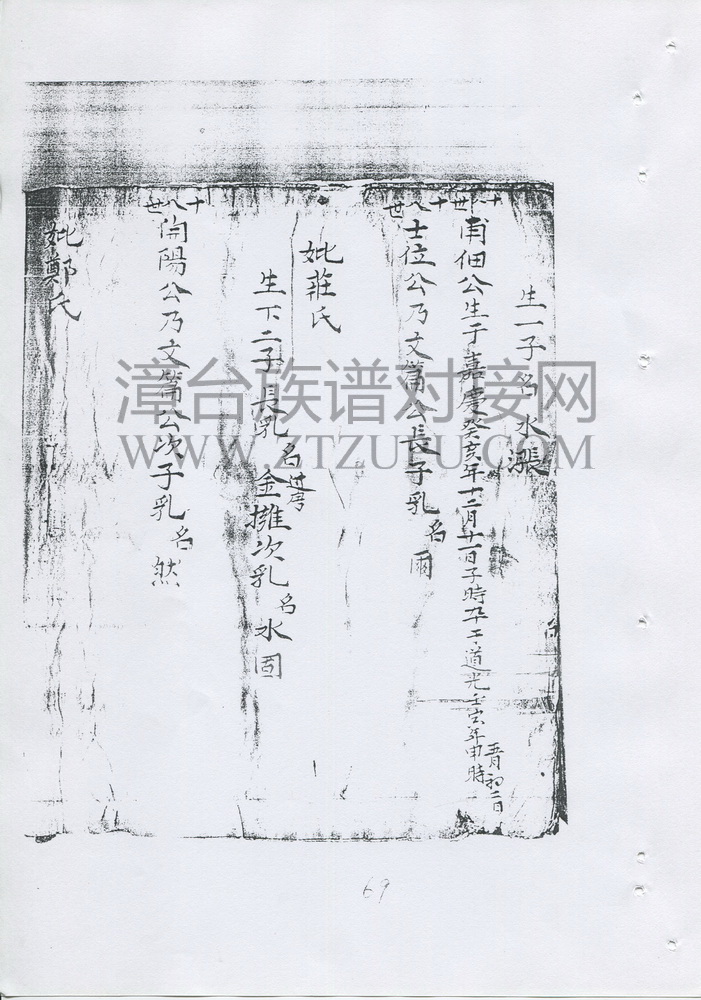 生一子名水漲
十八世
甫佃公生于嘉慶癸亥年十二月十一日子時卒于道光壬寅年五月初二日申時
十八世
士位公乃文篇公長子乳名爾
妣莊氏
生下二子長乳名金擁次乳名水固
十八世
開陽公乃文篇公次子乳名然
妣鄭氏
漳台族谱对接网
WWW.ZTZUPU.COM
69